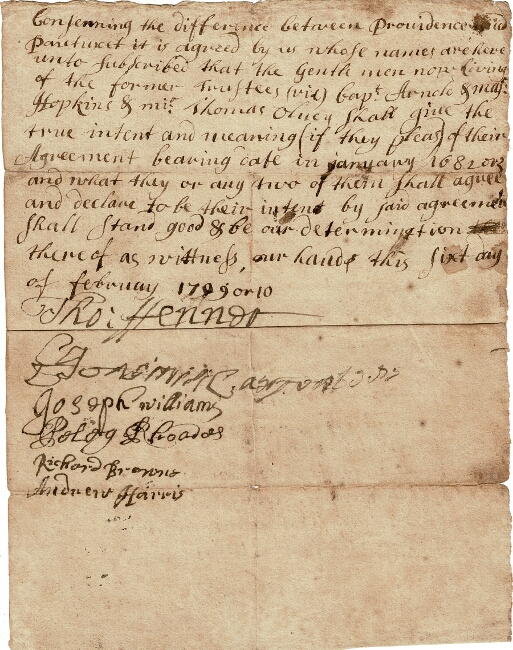 Consenning the difference between Providence and
Pantucet it is agreed by us whose names are here
unto subscribed that the Gentle men now living
of the former trustees (viz) Capt Arnold & maj:
Hopkins & mr: Thomas Olney shall give the
true intent and meaning (if they pleas) of their
Agreement bearing date in january 1682 or 3
and what they or any two of them shall agree
and declare to be their intent by said agreement
shall stand good & be our determination
thereof as wittness our hands this sixt day
of february 1709 or 10
Tho: ffennor
Joseph williams
Peleg Rhoades
Richard Browne
Andrew Harris